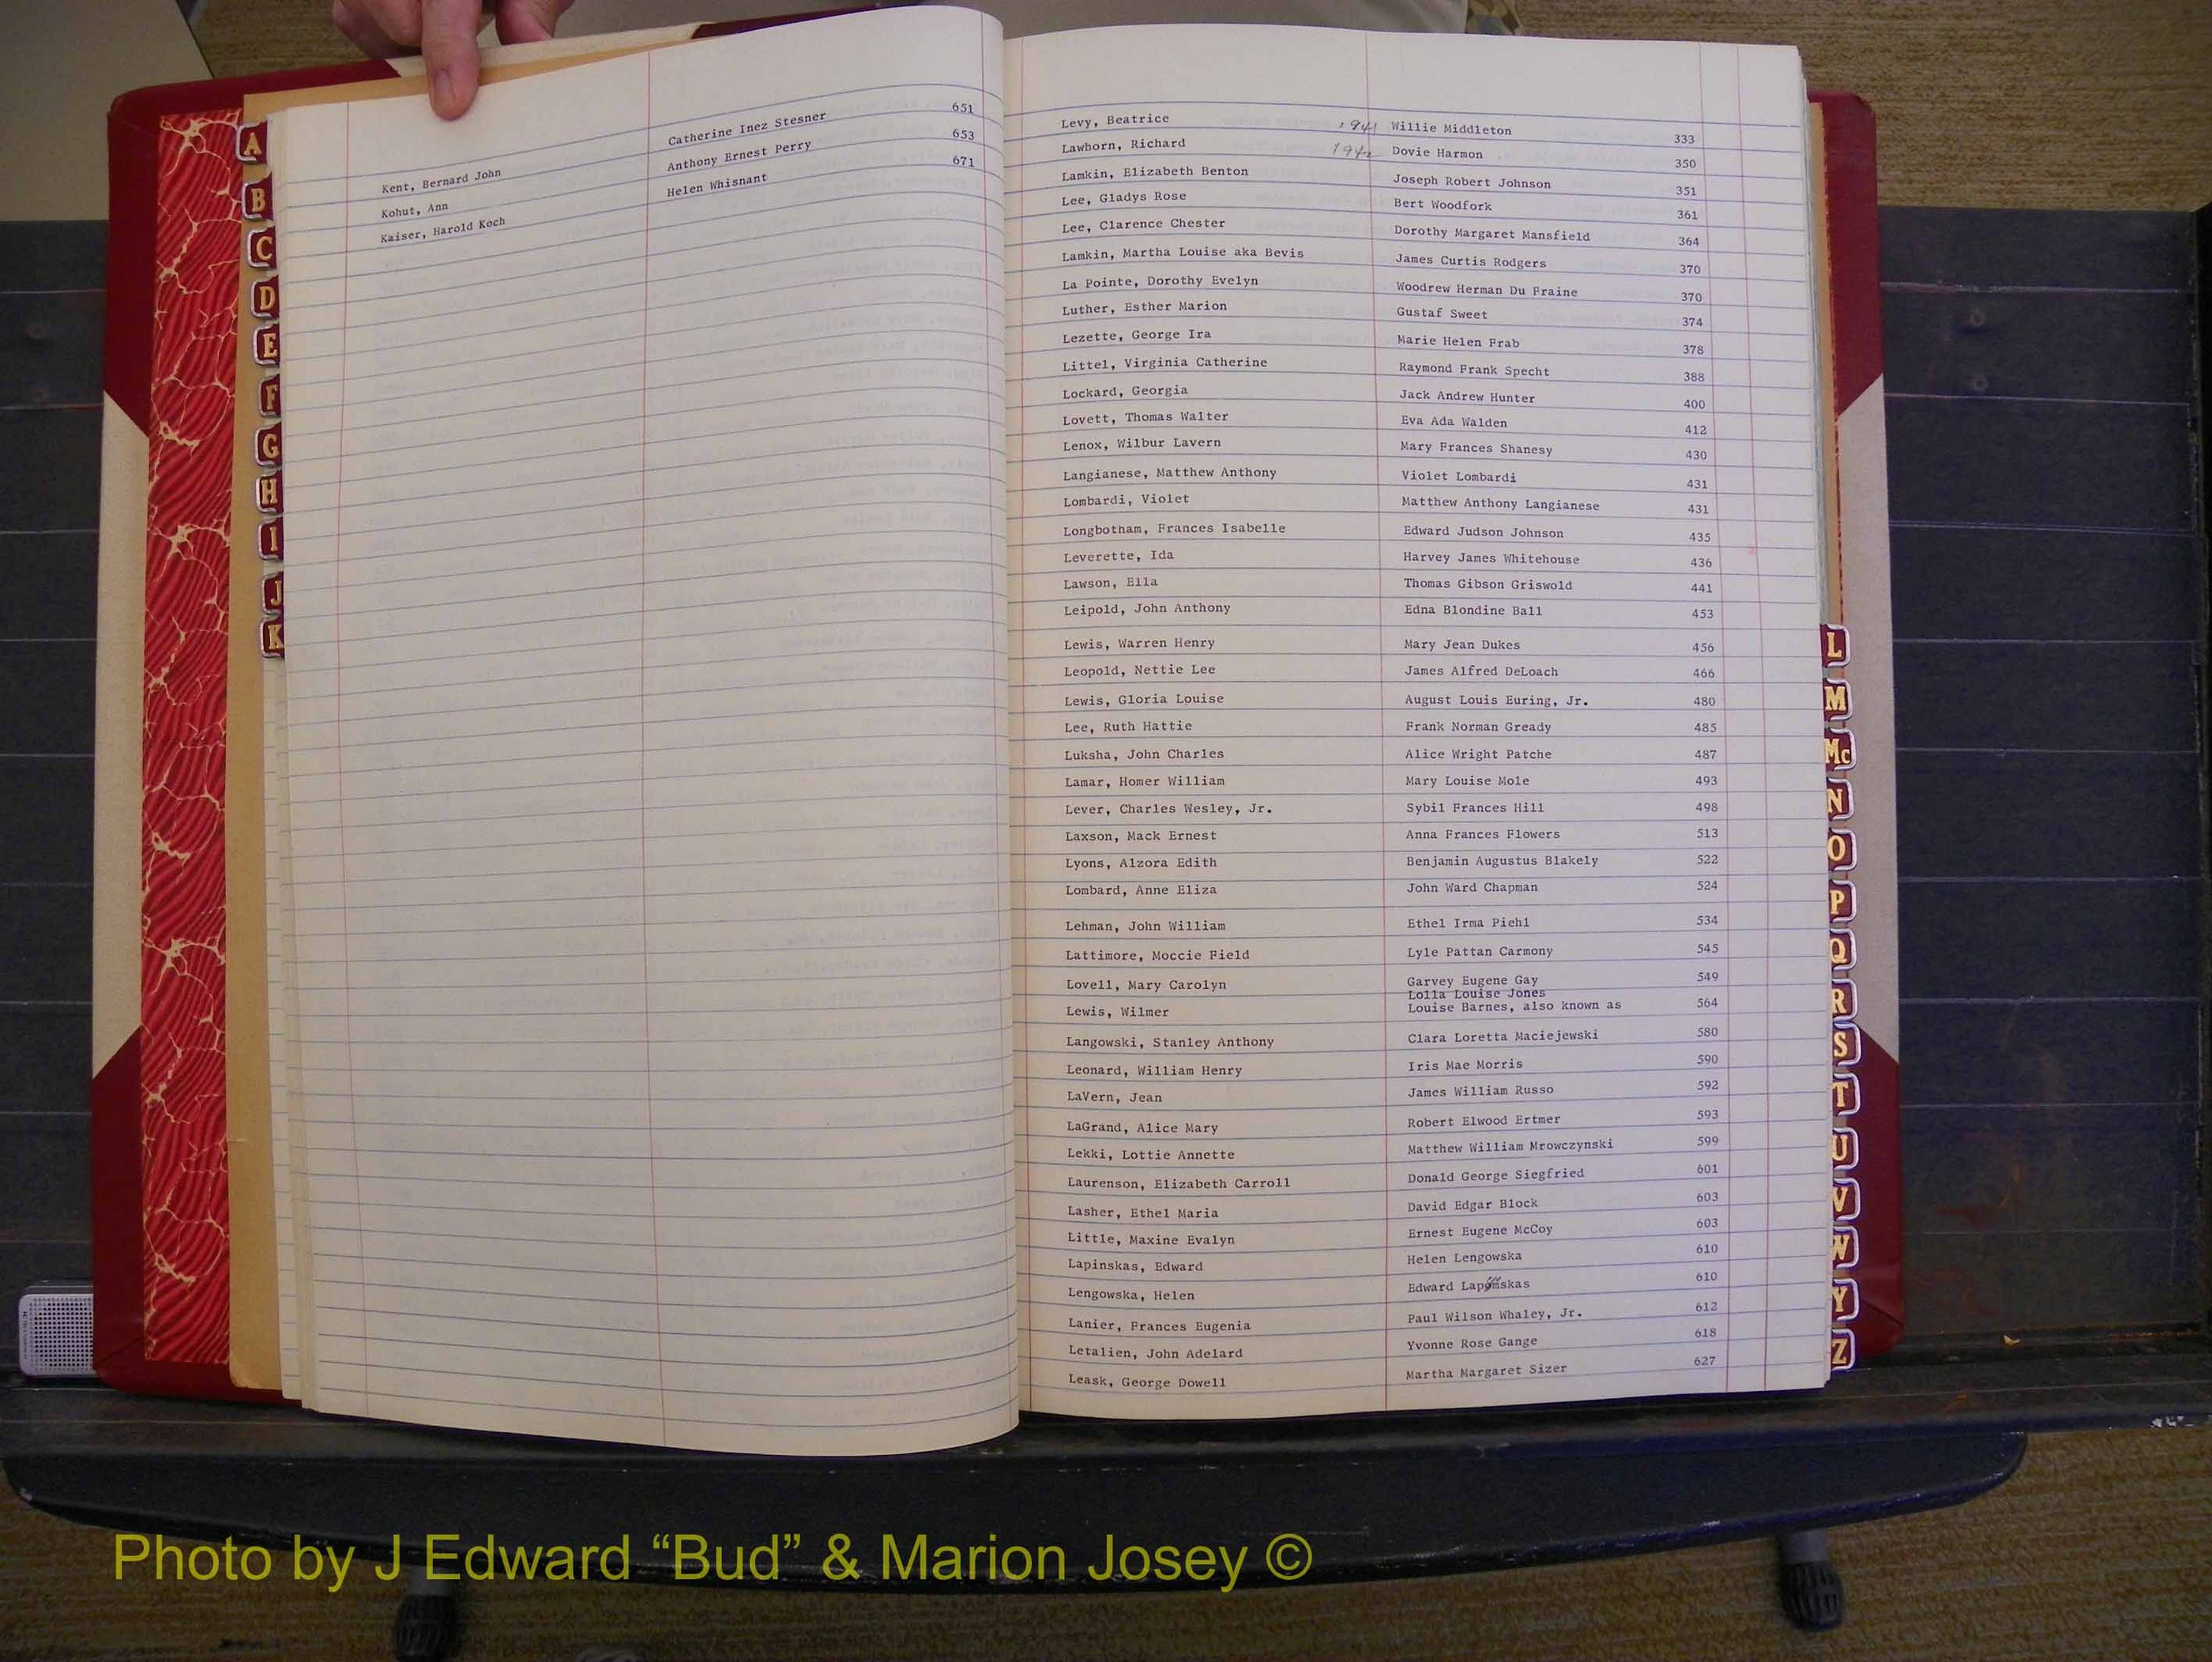 A
B
C
D
E
F
G
H
I
J
K
Kent, Bernard John Catherine Inez Stesner 651
Kohut, Ann Anthony Ernest Perry 653
Kaiser, Harold Koch Helen Whisnant 671
Levy, Beatrice 1941 Willie Middleton 333
Lawhorn, Richard 1942 Dovie Harmon 350
Lamkin, Elizabeth Benton Joseph Robert Johnson 351
Lee, Gladys Rose Bert Woodfork 361
Lee, Clarence Chester Dorothy Margaret Mansfield 364
Lamkin, Martha Louise aka Bevis James Curtis Rodgers 370
La Pointe, Dorothy Evelyn Woodrew Herman Du Fraine 370
Luther, Esther Marion Gustaf Sweet 374
Lezette, George Ira Marie Helen Frab 378
Littel, Virginia Catherine Raymond Frank Specht 388
Lockard, Georgia Jack Andrew Hunter 400
Lovett, Thomas Walter Eva Ada Walden 412
Lenox, Wilbur Lavern Mary Frances Shanesy 430
Langianese, Matthew Anthony Violet Lombardi 431
Lombardi, Violet Matthew Anthony Langianese 431
Longbotham, Frances Isabelle Edward Judson Johnson 435
Leverette, Ida Harvey James Whitehouse 436
Lawson, Ella Thomas Gibson Griswold 441
Leipold, John Anthony Edna Blondine Ball 453
Lewis, Warren Henry Mary Jean Dukes 456
Leopold, Nettie Lee James Alfred DeLoach 466
Lewis, Gloria Louise August Louis Euring, Jr. 480
Lee, Ruth Hattie Frank Norman Gready 485
Luksha, John Charles Alice Wright Patche 487
Lamar, Homer William Mary Louise Mole 493
Lever, Charles Wesley, Jr. Sybil Frances Hill 498
Laxson, Mack Ernest Anna Frances Flowers 513
Lyons, Alzora Edith Benjamin Augustus Blakely 522
Lombard, Anne Eliza John Ward Chapman 524
Lehman, John William Ethel Irma Piehl 534
Lattimore, Moccie Field Lyle Pattan Carmony 545
Lovell, Mary Carolyn Garvey Eugene Gay 549
Lolla Louise Jones
Lewis, Wilmer Louise Barnes, also known as 564
Langowski, Stanley Anthony Clara Loretta Maciejewski 580
Leonard, William Henry Iris Mae Morris 590
LaVern, Jean James William Russo 592
LaGrand, Alice Mary Robert Elwood Ertmer 593
Lekki, Lottie Annette Matthew William Mrowczynski 599
Laurenson, Elizabeth Carroll Donald George Siegfried 601
Lasher, Ethel Maria David Edgar Block 603
Little, Maxine Evalyn Ernest Eugene McCoy 603
Lapinskas, Edward Helen Lengowska 610
Lengowska, Helen Edward Lapinskas 610
Lanier, Frances Eugenia Paul Wilson Whaley, Jr. 612
Letalien, John Adelard Yvonne Rose Gange 618
Leask, George Dowell Martha Margaret Sizer 627
L
M
Mc
N
O
P
Q
R
S
T
U
V
W
Y
Z
Photo by J Edward “Bud” & Marion Josey ©